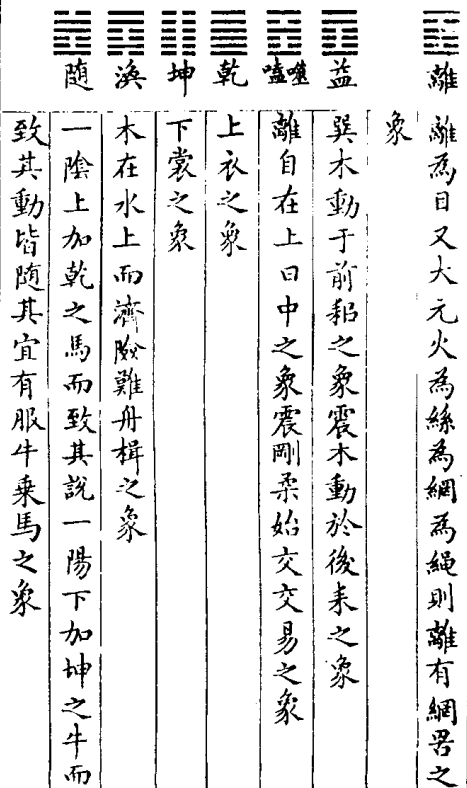 離 離為目又大元火為絲為網為繩則離有網罟之
象
益 巽木動于前耜之象震木動於後耒之象
噬嗑 離自在上日中之象震剛柔始交交易之象
乾 上衣之象
坤 下裳之象
渙 木在水上而濟險難舟楫之象
随 一陰上加乾之馬而致其說一陽下加坤之牛而
致其動皆随其宜有服牛乗馬之象